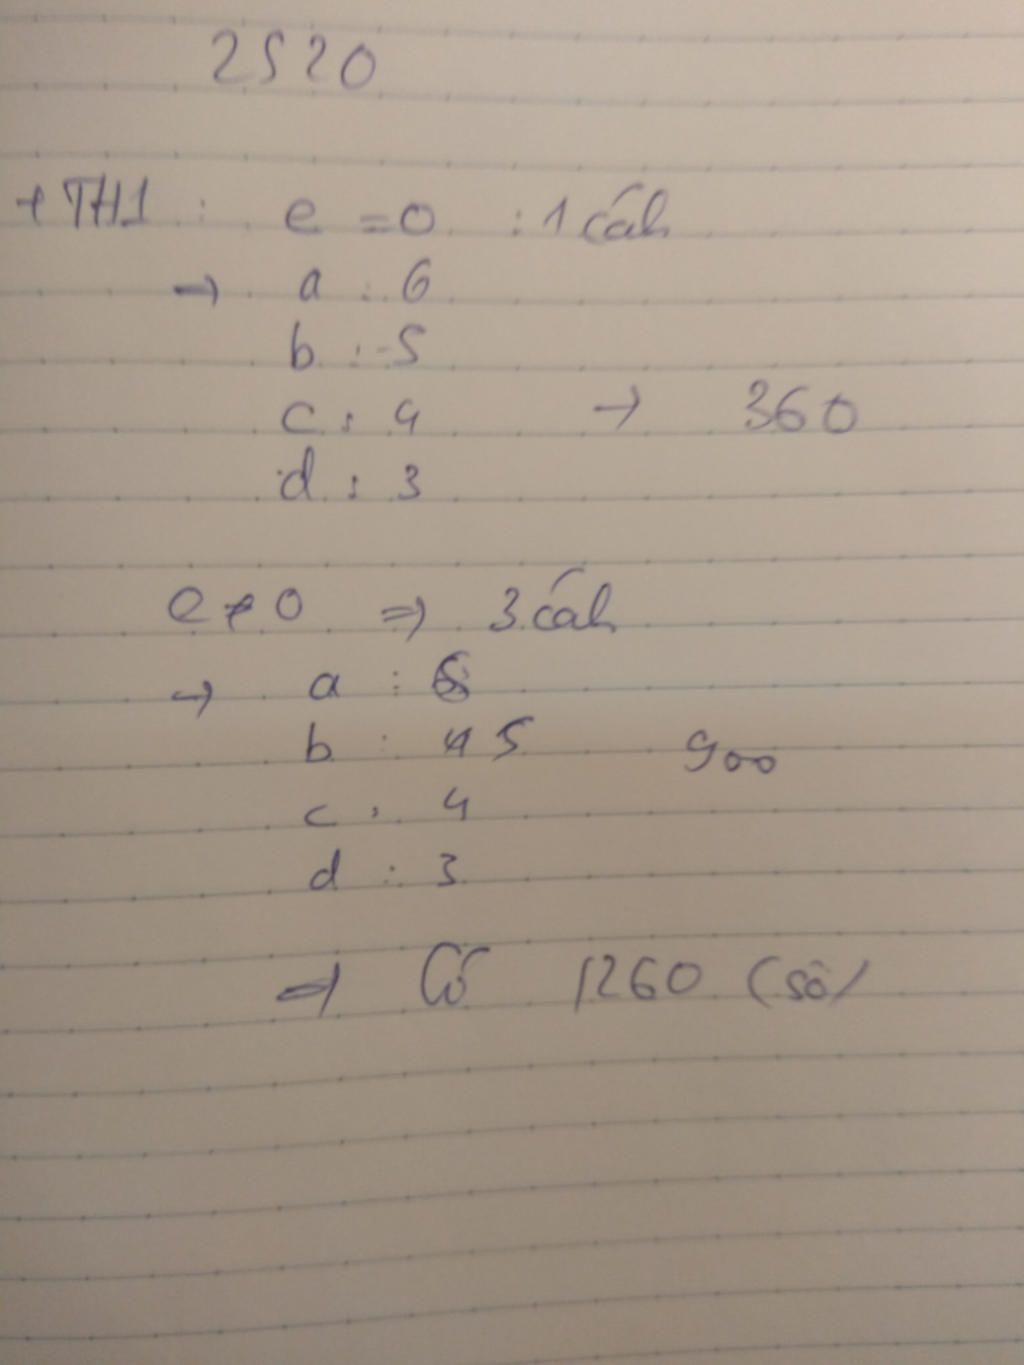 2520
+ TH1 : e = 0 : 1 cách
→ a : 6
b : 5
c : 4 → 360
d : 3
e ≠ 0 ⇒ 3 cách
→ a : 5
b : 5 900
c : 4
d : 3
⇒ Có 1260 (số)